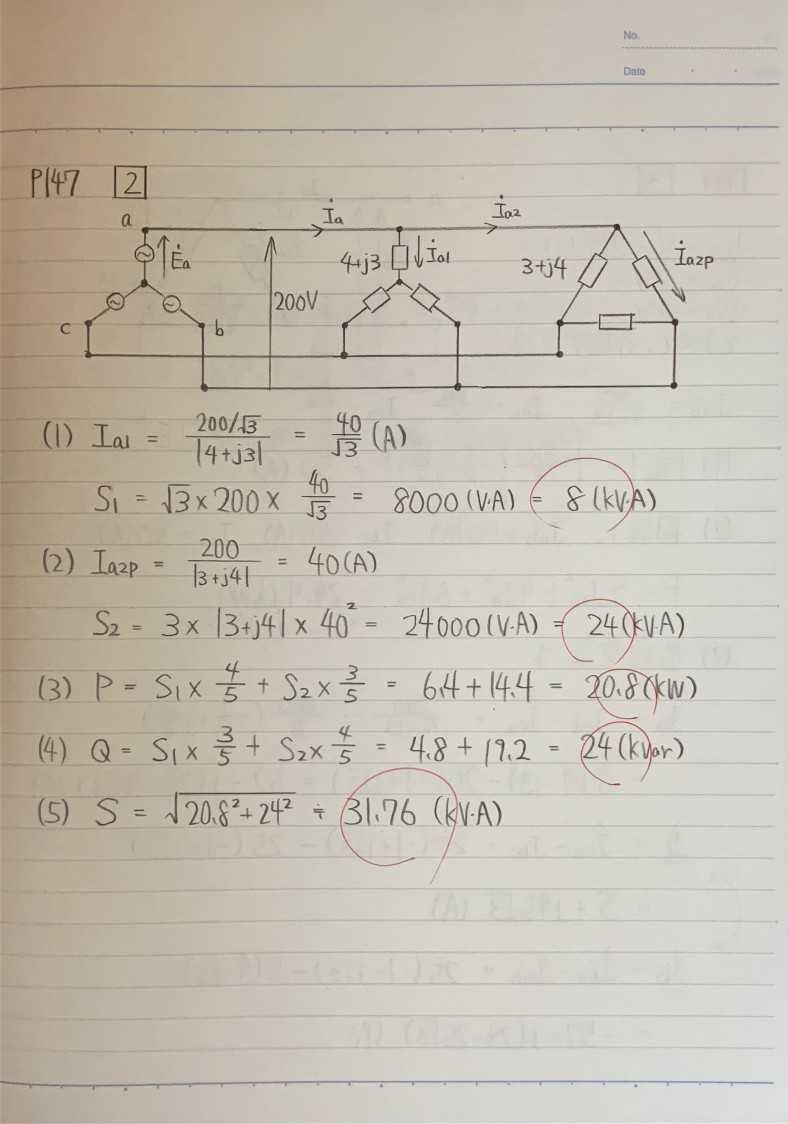 No.
Date
P147 2
a İa İa2
Ėa 4+j3 İa1 3+j4 İa2p
200V
c b
(1) Ia1 = 200/√3 / |4+j3| = 40/√3 (A)
S1 = √3 × 200 × 40/√3 = 8000 (V·A) = 8 (kV·A)
(2) Ia2p = 200 / |3+j4| = 40 (A)
S2 = 3 × |3+j4| × 40² = 24000 (V·A) = 24 (kV·A)
(3) P = S1 × 4/5 + S2 × 3/5 = 6.4 + 14.4 = 20.8 (kW)
(4) Q = S1 × 3/5 + S2 × 4/5 = 4.8 + 19.2 = 24 (kvar)
(5) S = √20.8² + 24² ≒ 31.76 (kV·A)